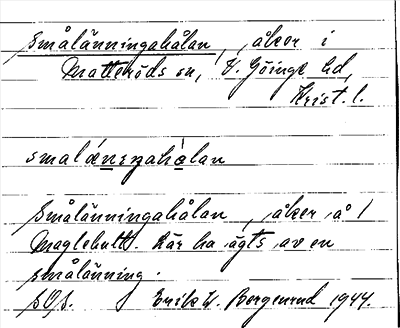 Smålänningahålan, åker i
Matteröds sn, V. Göinge hd,
Krist. l.
smalǽnɪŋahòlan
Smålänningahålan, åker å 1
Maglebult. Där ha ägts av en
smålänning.
Erik W. Bergenrud 1944.